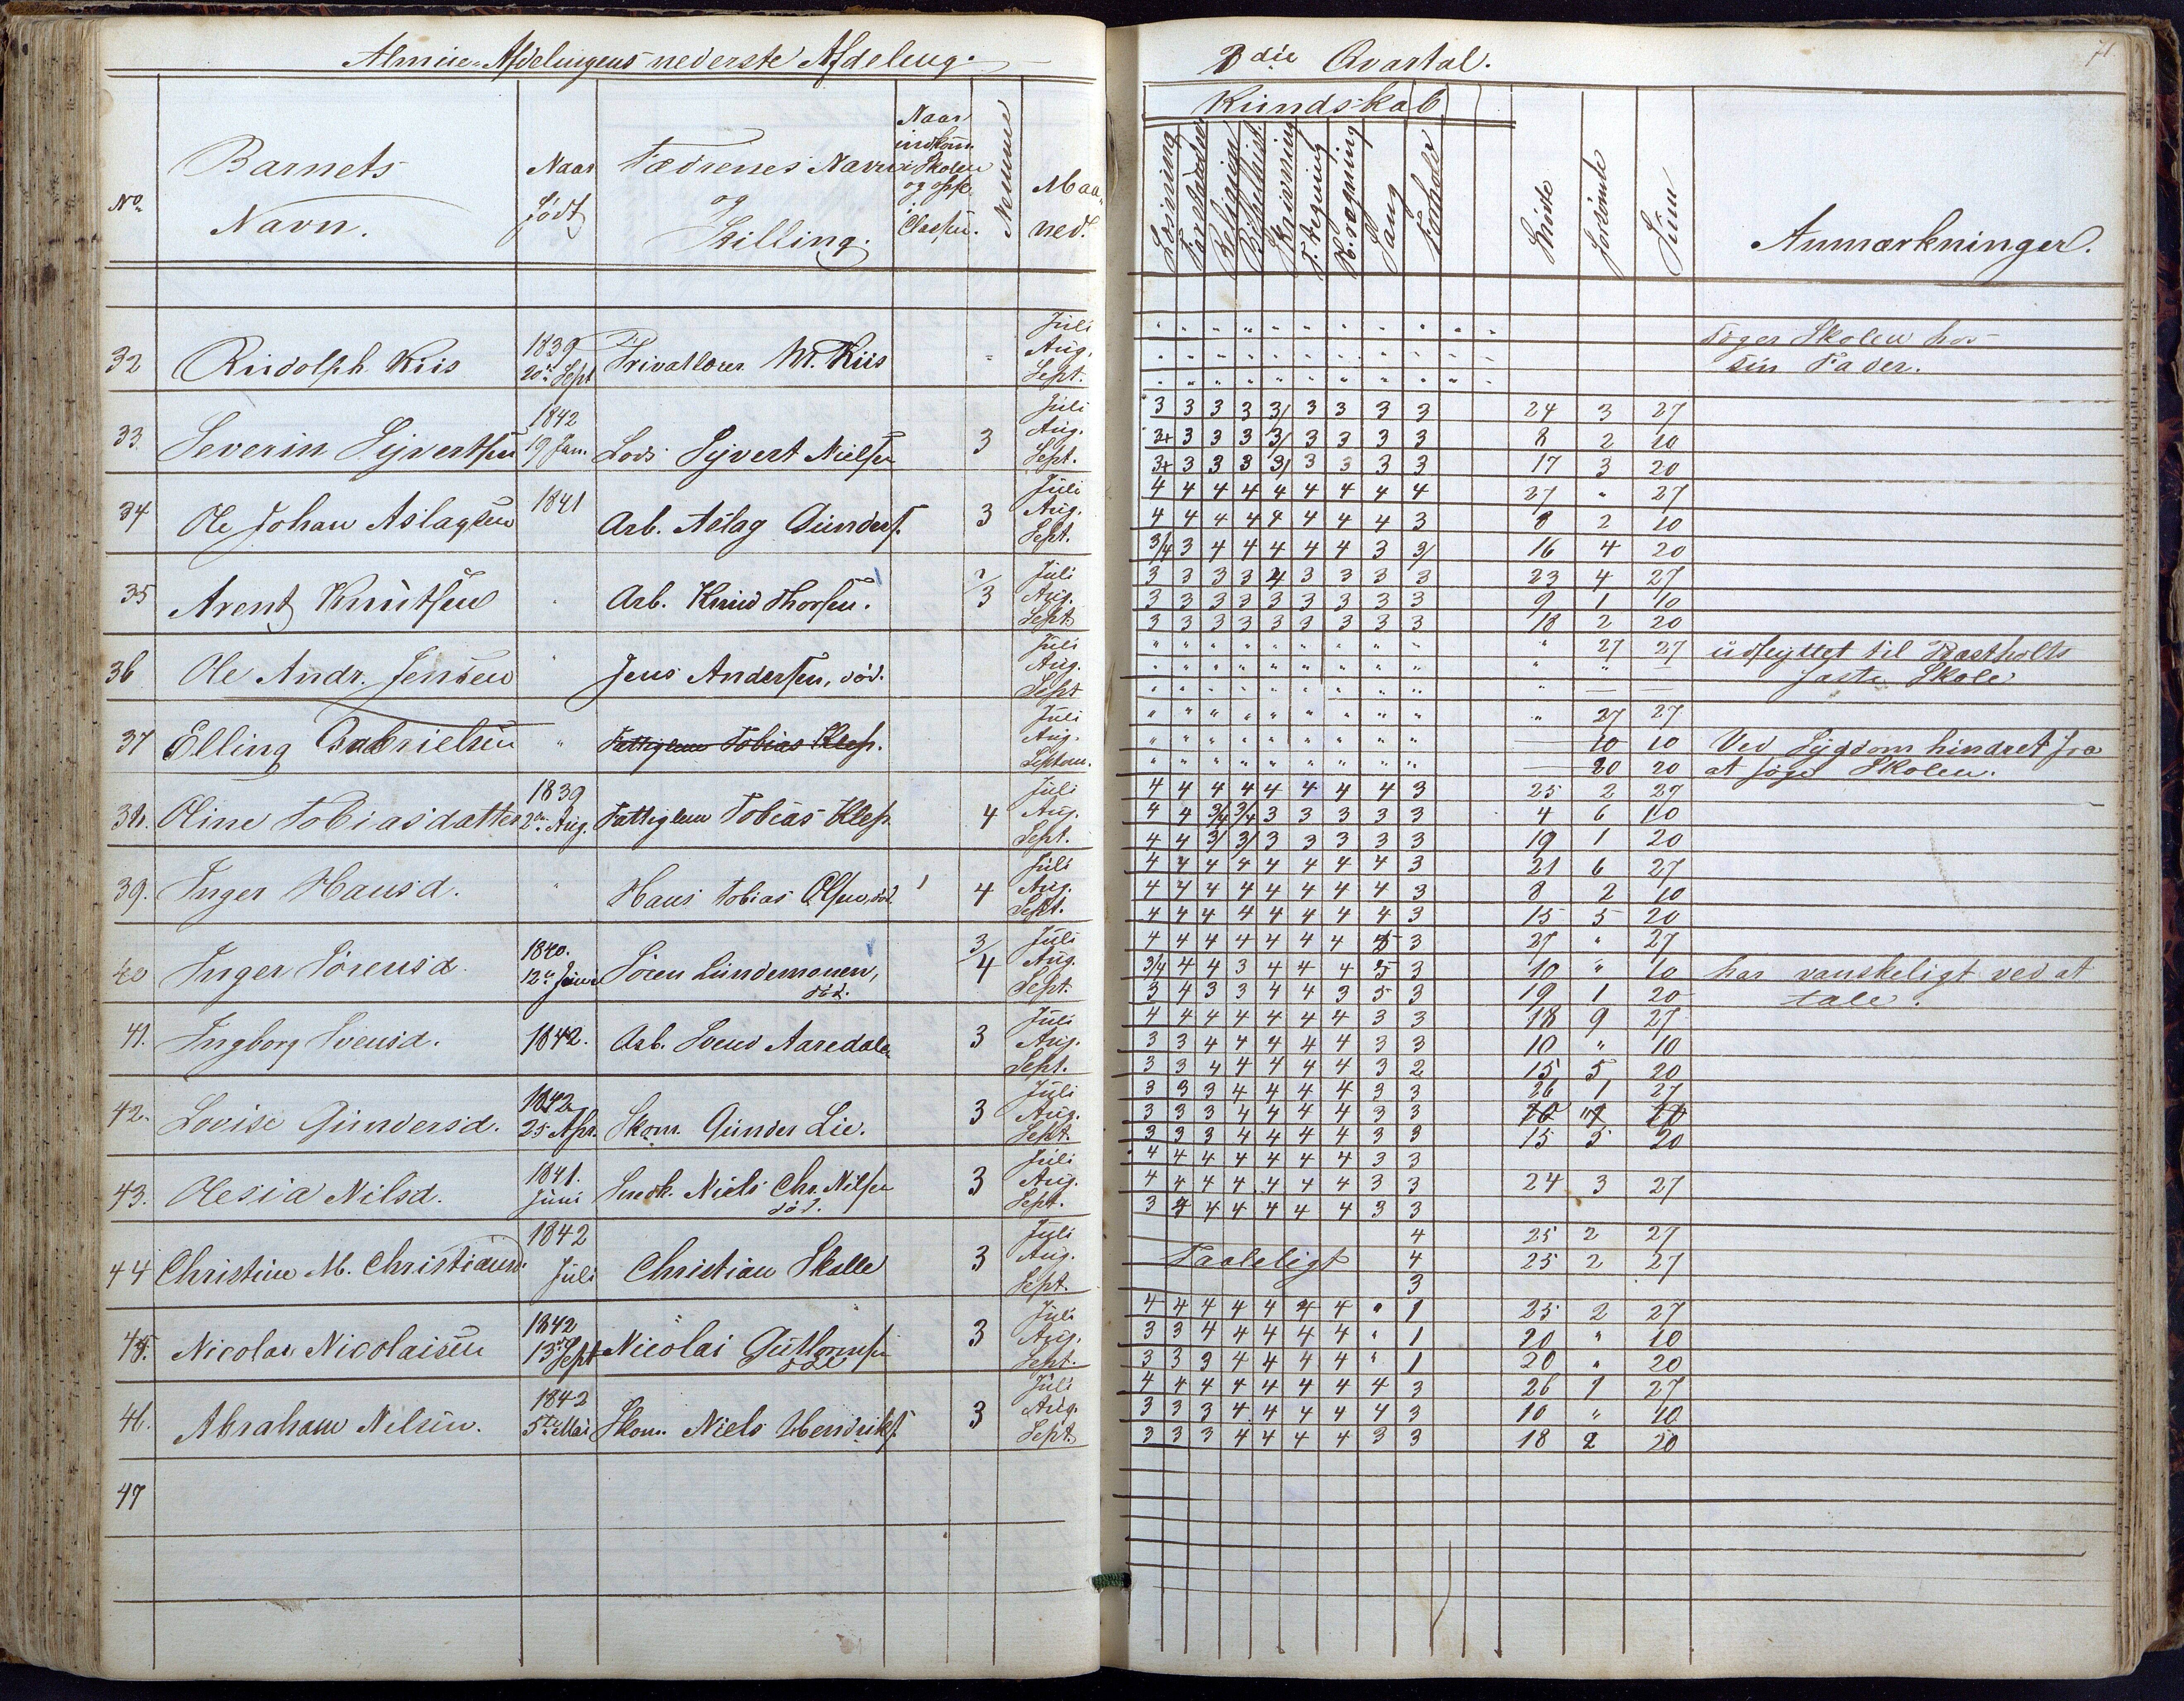 Almue-Afdelingens nederste Afdeling.
3die Qvartal.
71
No.
Barnets
Navn.
Naar
født
Fædrenes Navn
og
Stilling.
Naar
indkom
i Skolen
og opfl.
i
Classen.
Nemme
Maa-
ned.
Kundskab
Læsning
Forstandse
Religion
Bibelhist
Skrivning
T. regning
H. regning
Sang
Forhold
Søgte
forsømte
Sum
Anmærkninger.
32 Rudolph Kiis 1839 20de Sept Privatlærer M. Kiis Juli
Aug.
Sept.
Søger Skolen hos
sin Fader.
33. Severin Syvertsen 1842 19 Jan. Lods Syvert Nielsen 3
Juli 3 3 3 3 3/ 3 3 3 3 24 3 27
Aug. 3+ 3 3 3 3/ 3 3 3 3 8 2 10
Sept. 3+ 3 3 3 3/ 3 3 3 3 17 3 20
34 Ole Johan Aslagsen 1841 Arb. Aslag Gunders. 3
Juli 4 4 4 4 4 4 4 4 4 27 " 27
Aug. 4 4 4 4 4 4 4 4 3 8 2 10
Sept. 3/4 3 4 4 4 4 4 3 3/ 16 4 20
35 Arent Knutsen Arb. Knud Thorsen. 2/3
Juli 3 3 3 3 4 3 3 3 3 23 4 27
Aug. 3 3 3 3 3 3 3 3 3 9 1 10
Sept. 3 3 3 3 3 3 3 3 3 18 2 20
36 Ole Andr. Jensen " Jens Andersen, død.
Juli " " " " " " " " " " 27 27 udflyttet til Rastholts
Aug. " " " " " " " " " " " — faste Skole
Sept " " " " " " " " " " — —
37 Elling Gabrielsen " Fattiglem Tobias Klep.
Juli " " " " " " " " " " 27 27
Aug. " " " " " " " " " — 10 10 Ved Sygdom hindret fra
Septem. " " " " " " " " " — 20 20 at søge Skolen.
38. Oline Tobiasdatter 1839 2den Aug. Fattiglem Tobias Klep. 4
Juli 4 4 4 4 4 4 4 4 3 25 2 27
Aug. 4 4 3/4 3/4 3 3 3 3 3 4 6 10
Sept. 4 4 3/ 3/ 3 3 3 3 3 19 1 20
39. Inger Hansd. " Hans Tobias Olsen, død. 4
Juli 4 4 4 4 4 4 4 4 3 21 6 27
Aug. 4 4 4 4 4 4 4 4 3 8 2 10
Sept. 4 4 4 4 4 4 4 4 3 15 5 20
40 Inger Sørensd. 1840. 12te Juni Søren Lundemonen, død. 3/4
Juli 4 4 4 4 4 4 4 5 3 27 " 27
Aug. 3/4 4 4 3 4 4 4 5 3 10 " 10 har vanskeligt ved at
Sept. 3 4 3 3 4 4 3 5 3 19 1 20 tale.
41. Ingborg Svensd. 1842. Arb. Svend Aaredalen 3
Juli 4 4 4 4 4 4 4 3 3 18 9 27
Aug. 3 3 4 4 4 4 4 3 3 10 " 10
Sept. 3 3 4 4 4 4 4 3 2 15 5 20
42. Lovise Gundersd. 1842 25 Apr. Skom. Gunder Lie. 3
Juli 3 3 3 4 4 4 4 3 3 26 1 27
Aug. 3 3 3 4 4 4 4 3 3 10 " 10
Sept. 3 3 3 4 4 4 4 3 3 15 5 20
43. Olesia Nilsd. 1841. Juni Snedk. Niels Chr. Nilsen død. 3
Juli 4 4 4 4 4 4 4 3 3
Aug. 4 4 4 4 4 4 4 3 3 24 3 27
Sept. 3 4 4 4 4 4 4 3 3
44 Christine M. Christiansd. 1842 Juli Christian Skalle 3
Juli 4 25 2 27
Aug. Taaleligt 4 25 2 27
Sept. 3
45. Nicolai Nicolaisen 1842 13de Sept Nicolai Guttormsen død 3
Juli 4 4 4 4 4 4 4 " 1 25 2 27
Aug. 3 3 4 4 4 4 4 " 1 10 " 10
Sept. 3 3 3 4 4 4 4 " 1 20 " 20
46. Abraham Nelsen. 1842 5te Mai Skom. Niels Hendriks. 3
Juli 4 4 4 4 4 4 4 4 3 26 1 27
Aug. 3 3 3 4 4 4 4 4 3 10 " 10
Sept. 3 3 3 4 4 4 4 3 3 18 2 20
47